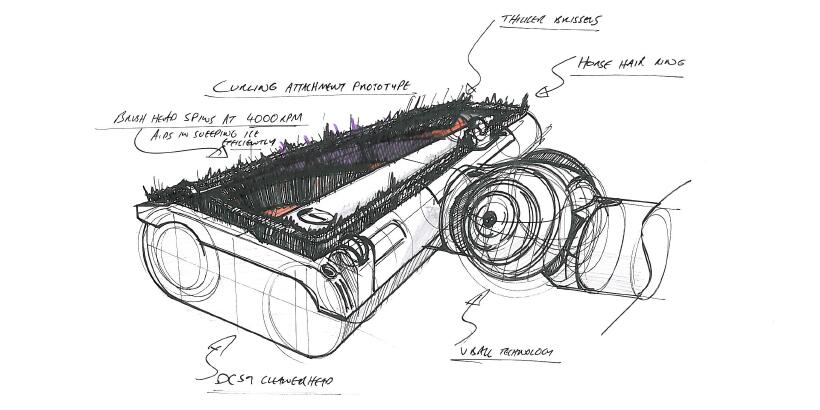 THICKER BRISSELS
HORSE HAIR RING
CURLING ATTACHMENT PROTOTYPE
BRUSH HEAD SPINS AT 4000RPM
AIDS IN SWEEPING ICE
EFFICIENTLY
V BALL TECHNOLOGY
DC59 CLEANERHEAD